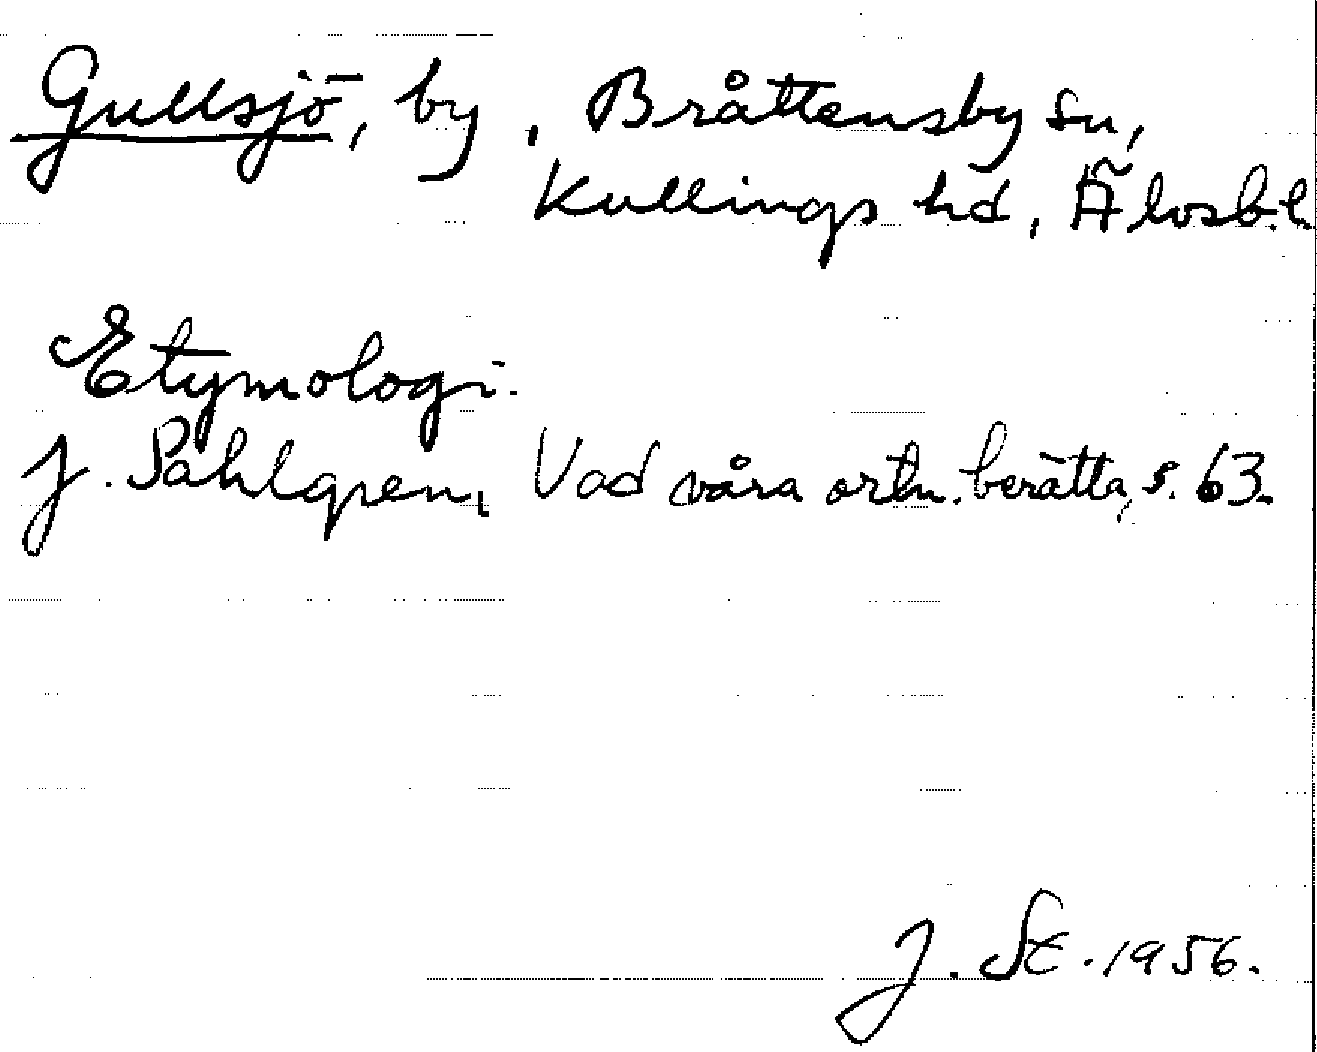 Gullsjö, by, Bråttensby sn,
Kullings hd, Älvsb.l.
Etymologi.
J. Sahlgren, Vad våra ortn. berätta, s. 63.
J. St. 1956.